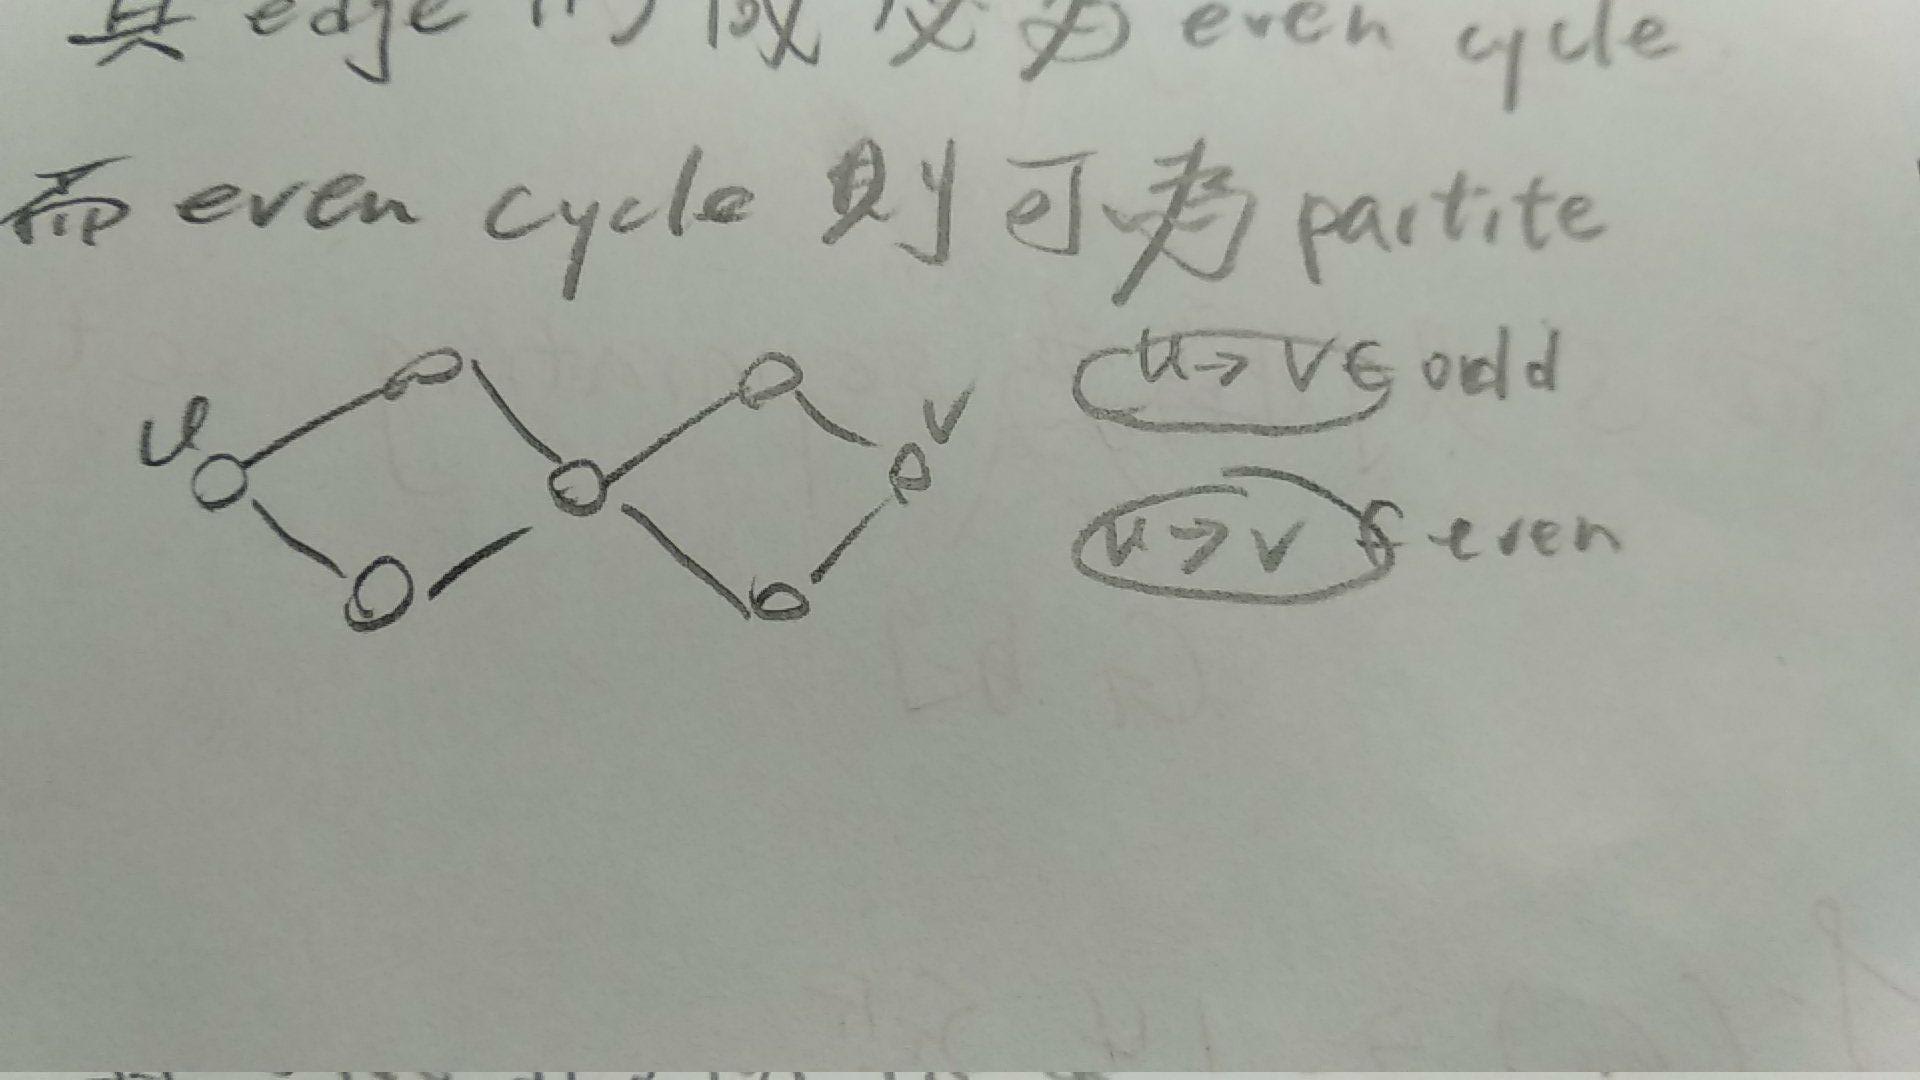 其 edge 的 cycle 必为 even cycle
而 even cycle 則可為 partite
u v
u→v ∈ odd
u→v ∈ even